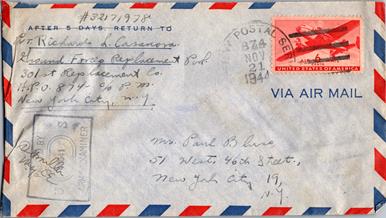 #32171978
AFTER 5 DAYS, RETURN TO
Pvt Richards L. Casanova
Ground Force Replacement
301st Replacement Co.
A.P.O. 874 c/o P.M.
New York City, N.Y.
POSTAL SE
874
NOV
21
1944
6
UNITED STATES OF AMERICA
VIA AIR MAIL
BY
Mr. Paul Bliss
51 West 46th Street,
New York City 19,
N.Y.